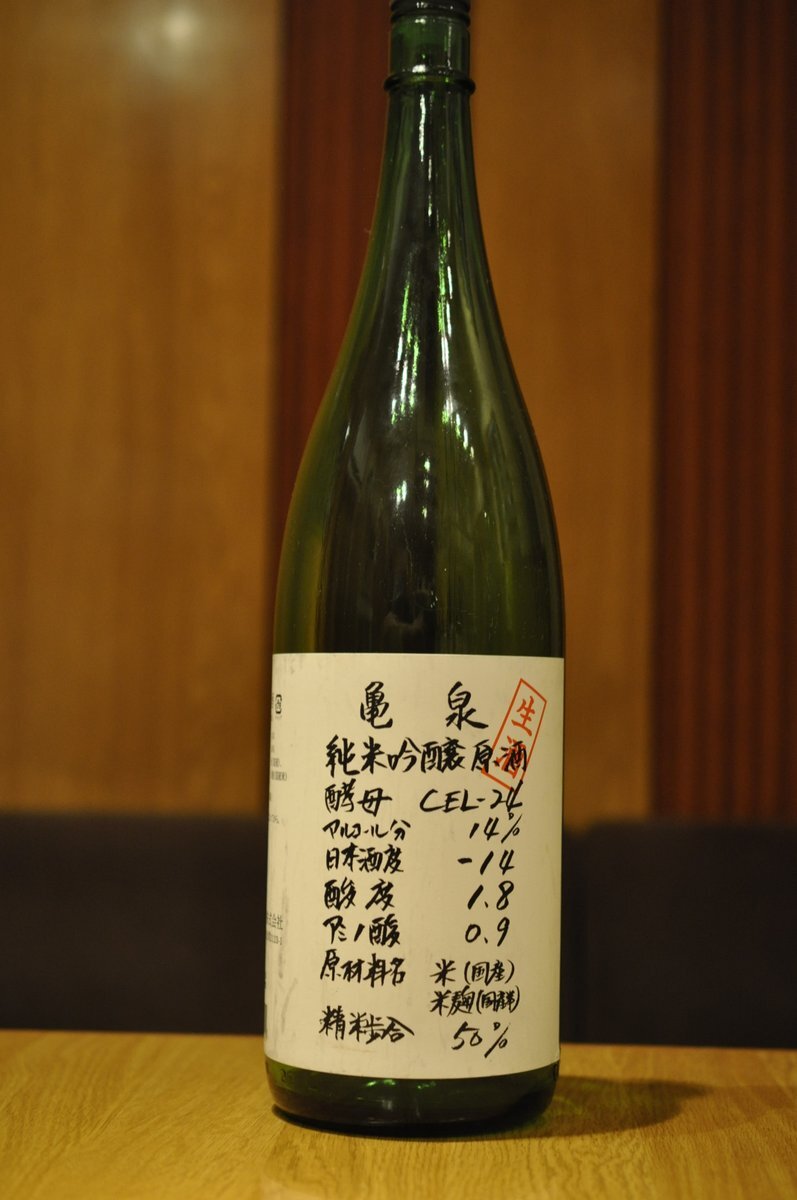 亀泉
生酒
純米吟醸原酒
酵母 CEL-24
アルコール分 14%
日本酒度 -14
酸度 1.8
アミノ酸 0.9
原材料名 米(国産)
米麹(国産米)
精米歩合 50%
式会社